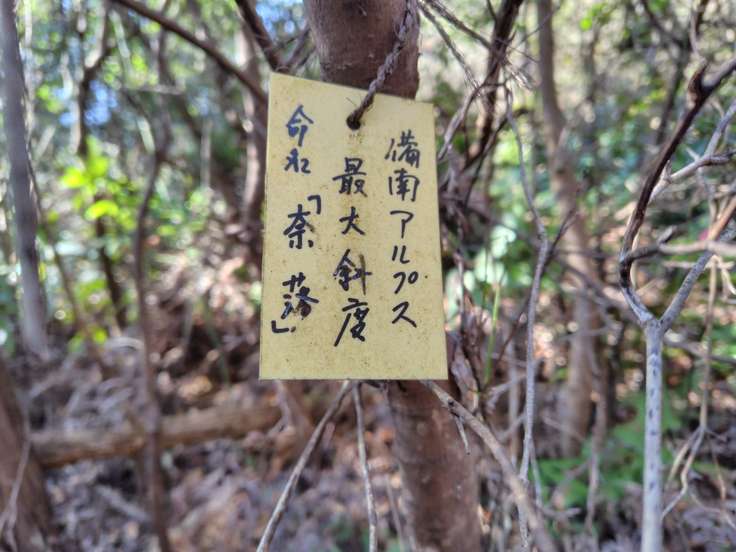 備南アルプス
最大斜度
命名「奈落」